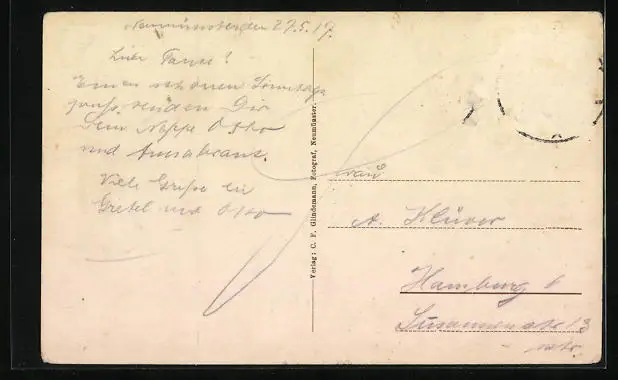 Neumünster den 27.5.19.
Liebe Tante!
Einen schönen Sonntags
gruß senden Dir
Dein Neffe Otto
und
Viele Grüße
Gretel und Otto
Verlag: C. F. Glindemann, Fotograf, Neumünster.
Frau
A. Klüver
Hamburg 6
Susannenstr. 13